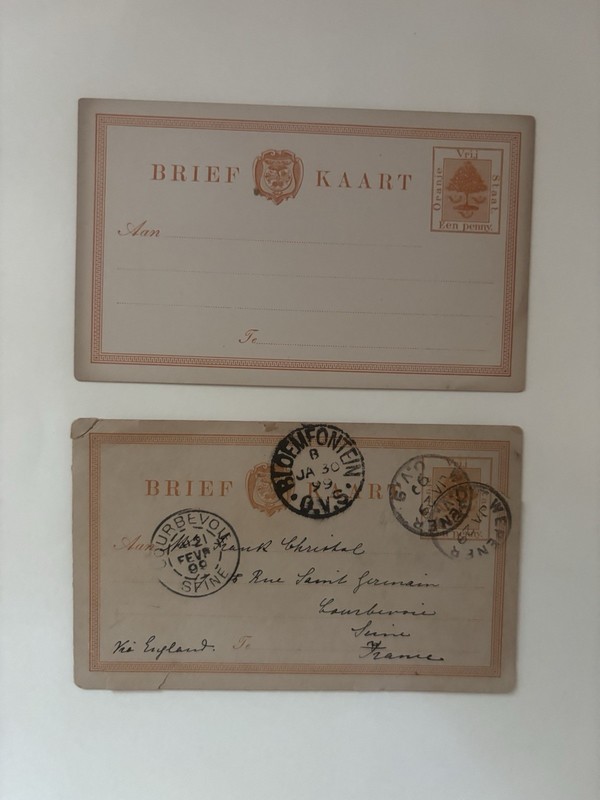 BRIEF KAART
Vrij
Oranje
Staat
Een penny.
Aan
Te
BRIEF KAART
BLOEMFONTEIN
B
JA 30
99
O.V.S.
WEPENER
O.V.S.
WEPENER
COURBEVOIE
21
FEVR
99
SEINE
Aan Frank Christal
8 Rue Saint Germain
Courbevoie
Seine
Via England. Te France